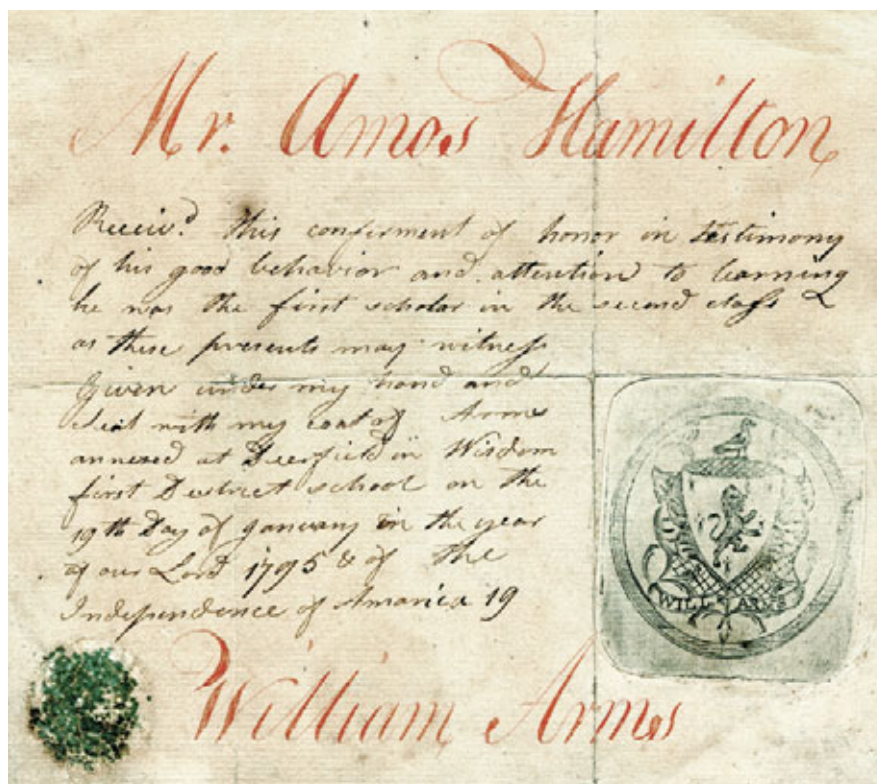 Mr. Amos Hamilton
Receiv.d this conferment of honor in testimony
of his good behavior and attention to learning
he was the first scholar in the second class
as these presents may witness
Given under my hand and
Seal with my coat of Arms
annexed at Deerfield in Wisdom
first District school on the
19th Day of January in the year
of our Lord 1795 & of the
Independence of America 19
WILL ARMS
William Arms